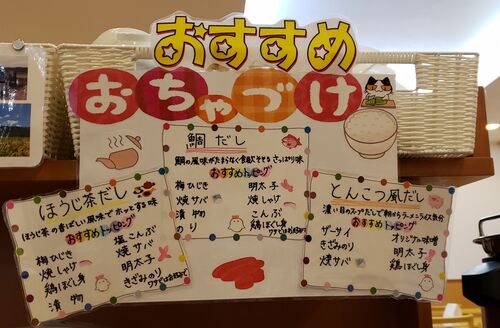 おすすめ
おちゃづけ
鯛だし
鯛の風味がたまらなく食欲そそるさっぱり味
おすすめトッピング
梅ひじき
焼サバ
漬物
のり
明太子
焼しゃり
こんぶ
鶏ほぐし身
ワサビはお好みで
ほうじ茶だし
ほうじ茶の香ばしい風味でホッとする味
おすすめトッピング
梅ひじき
焼しゃり
鶏ほぐし身
漬物
塩こんぶ
焼サバ
明太子
きざみのり
ワサビはお好みで
とんこつ風だし
濃い目のスープだしで朝からラーメンライス気分
おすすめトッピング
ザーサイ
きざみのり
焼サバ
オリジナル味噌
明太子
鶏ほぐし身